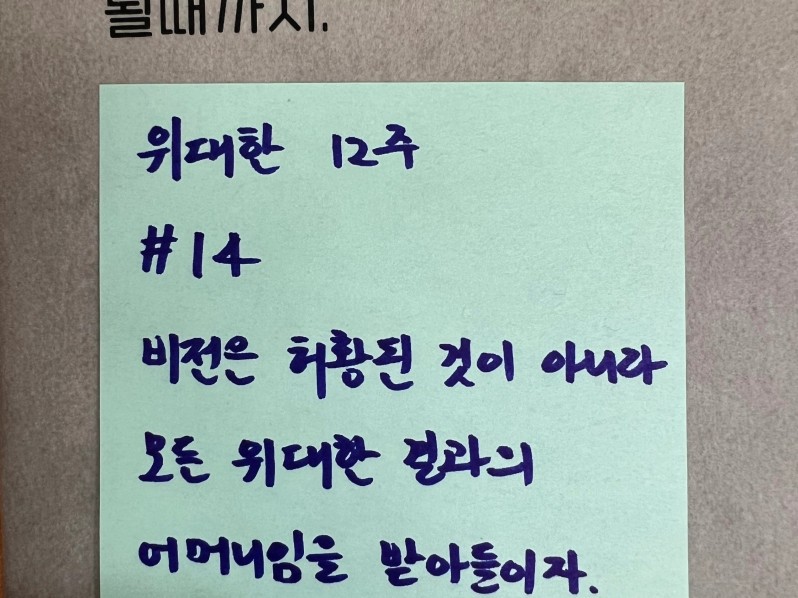 될때까지.
위대한 12주
#14
비전은 허황된 것이 아니라
모든 위대한 결과의
어머니임을 받아들이자.